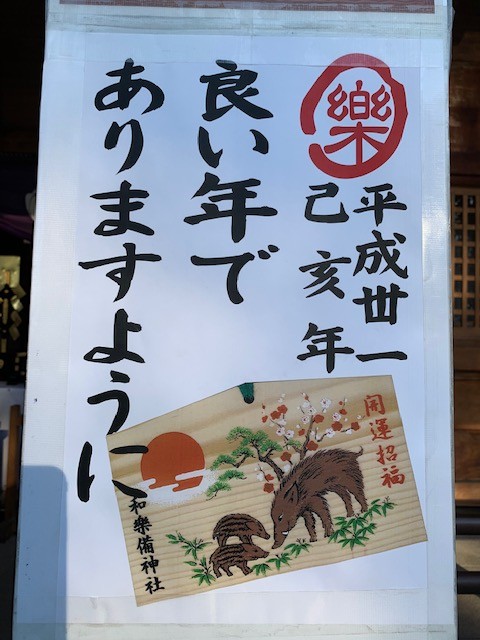 樂
平成丗一
己亥年
良い年で
ありますように
開運招福
和樂備神社